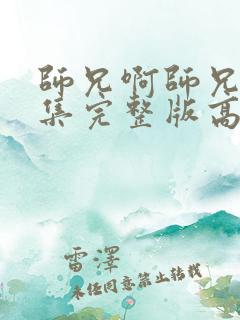 師兄啊師兄
集完整版高
雷澤
未任同意禁止轉載